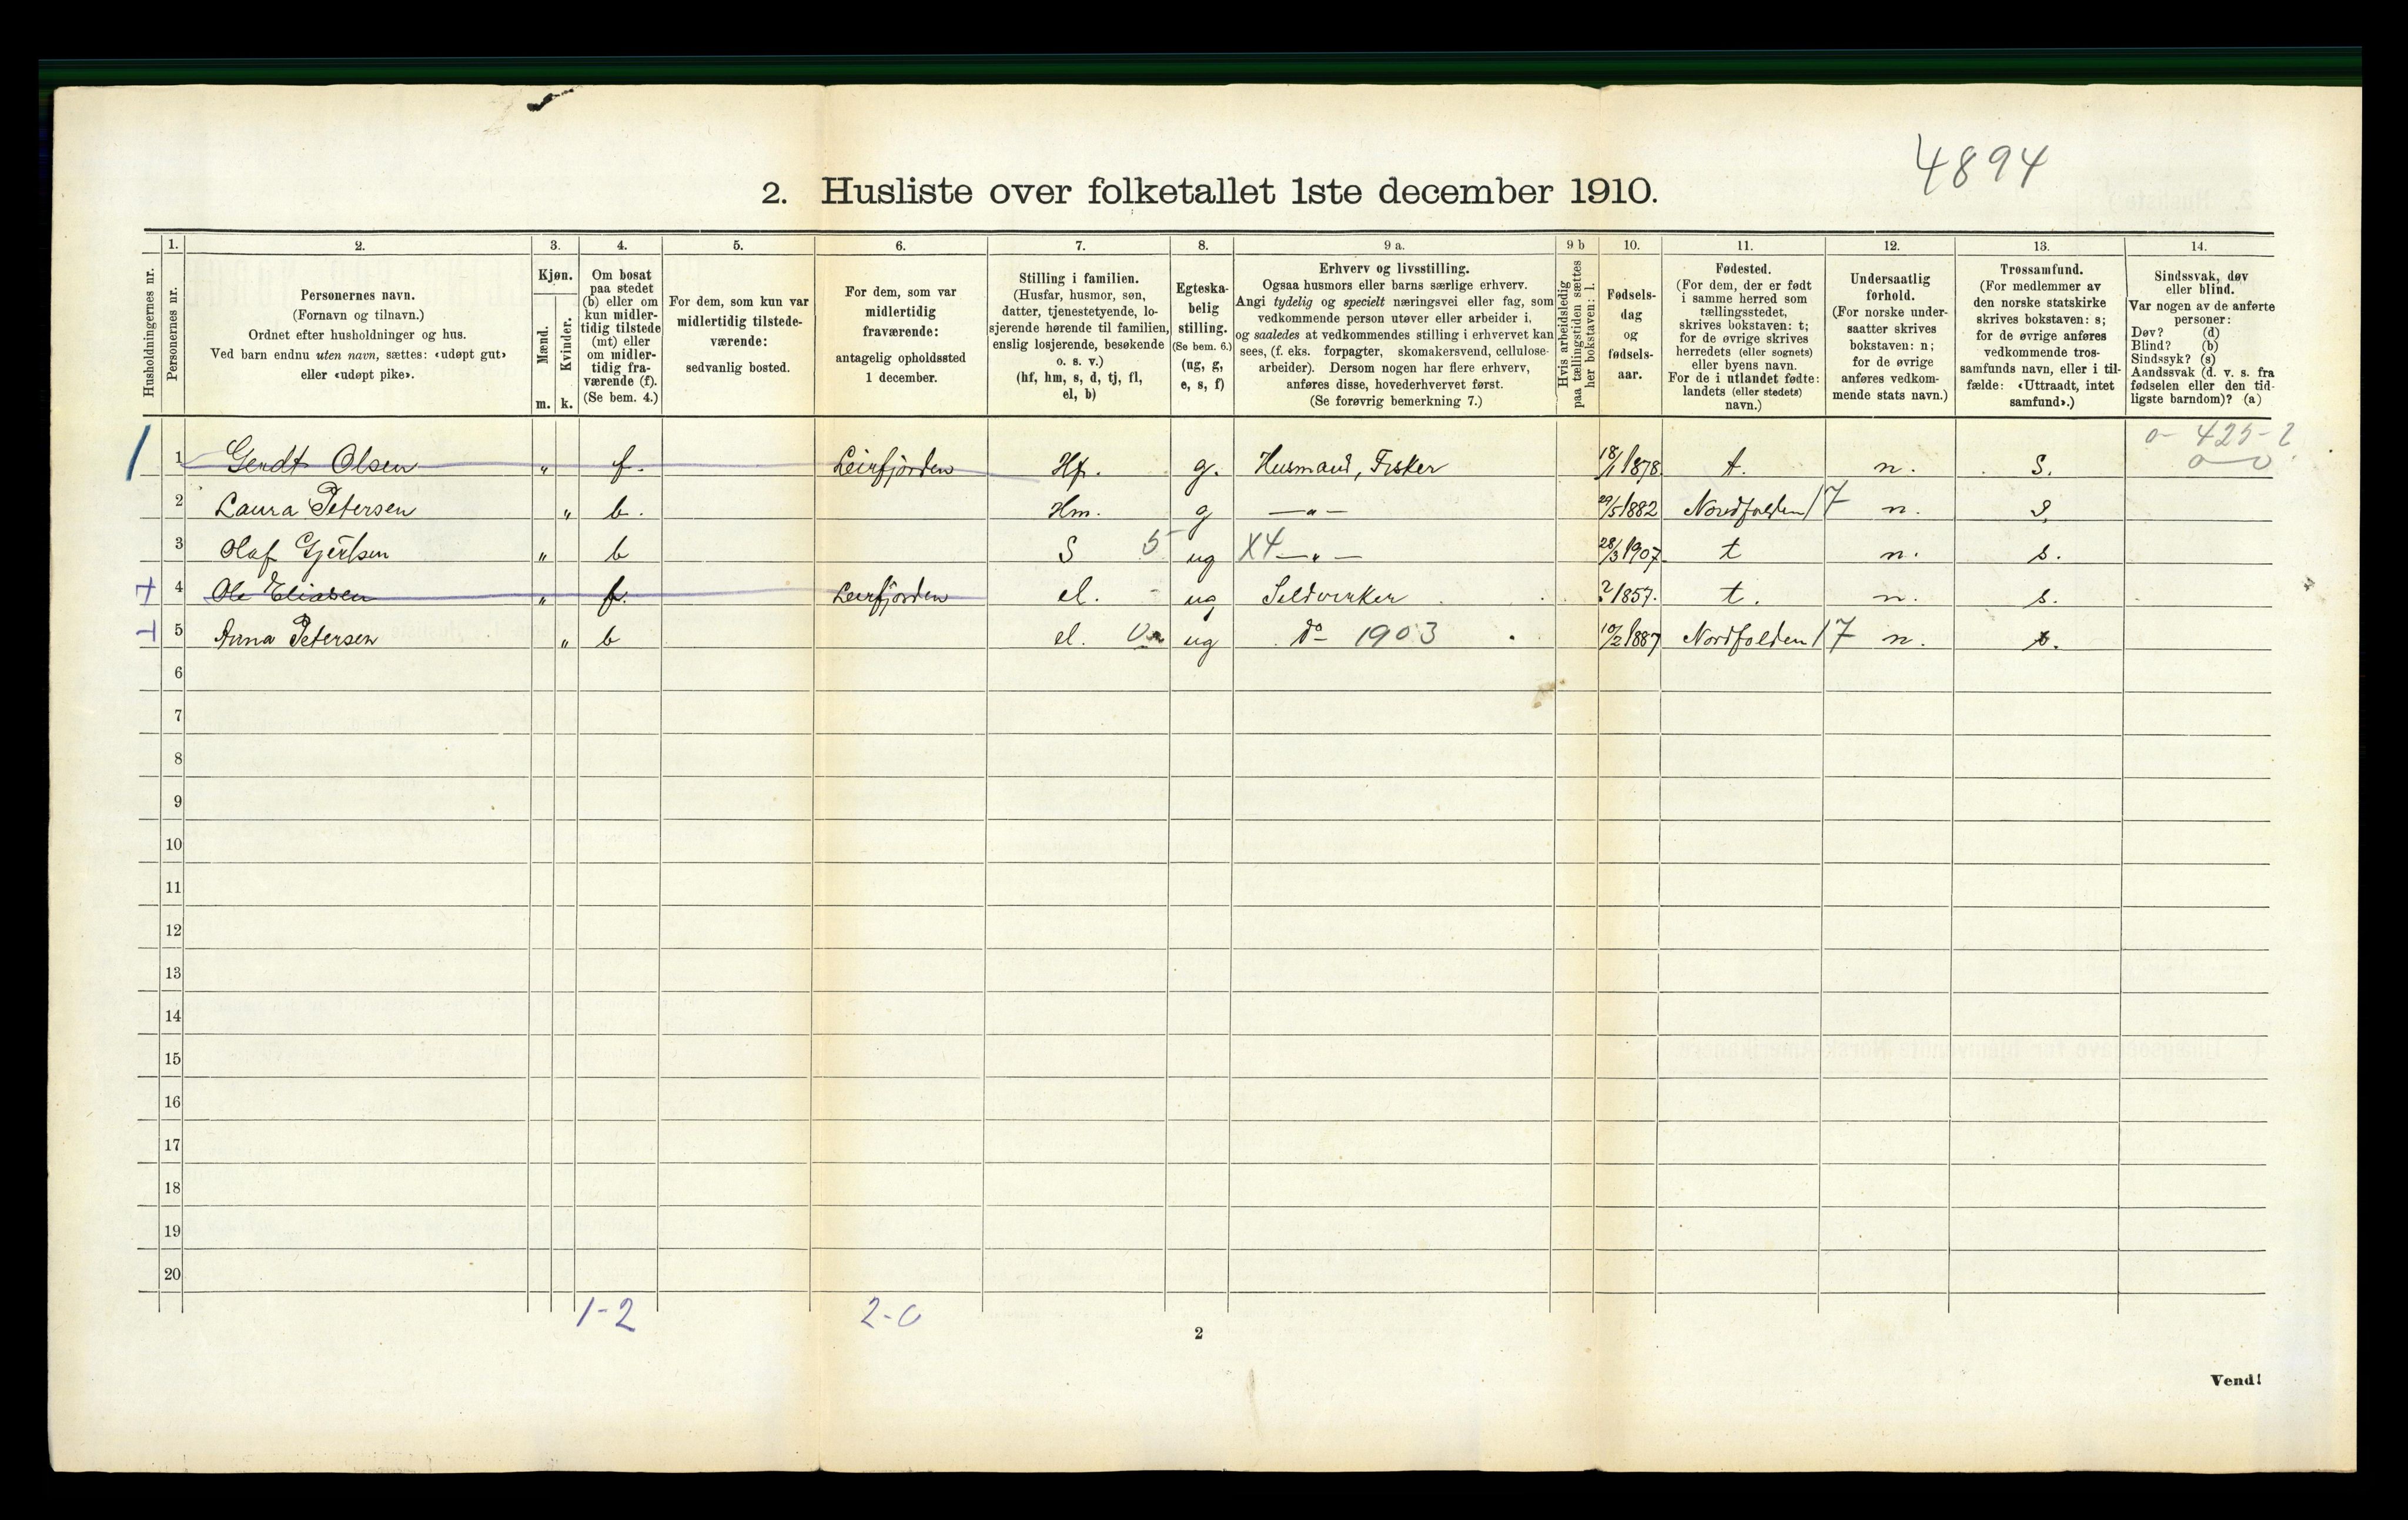 4894
2. Husliste over folketallet 1ste december 1910.
Husholdningernes nr.
1. Personernes nr.
2. Personernes navn.
(Fornavn og tilnavn.)
Ordnet efter husholdninger og hus.
Ved barn endnu uten navn, sættes: «udøpt gut»
eller «udøpt pike».
3. Kjøn.
Mænd. m.
Kvinder. k.
4. Om bosat
paa stedet
(b) eller om
kun midler-
tidig tilstede
(mt) eller
om midler-
tidig fra-
værende (f).
(Se bem. 4.)
5. For dem, som kun var
midlertidig tilstede-
værende:
sedvanlig bosted.
6. For dem, som var
midlertidig
fraværende:
antagelig opholdssted
1 december.
7. Stilling i familien.
(Husfar, husmor, søn,
datter, tjenestetyende, lo-
sjerende hørende til familien,
enslig losjerende, besøkende
o. s. v.)
(hf, hm, s, d, tj, fl,
el, b)
8. Egteska-
belig
stilling.
(Se bem. 6.)
(ug, g,
e, s, f)
9 a. Erhverv og livsstilling.
Ogsaa husmors eller barns særlige erhverv.
Angi tydelig og specielt næringsvei eller fag, som
vedkommende person utøver eller arbeider i,
og saaledes at vedkommendes stilling i erhvervet kan
sees, (f. eks. forpagter, skomakersvend, cellulose-
arbeider). Dersom nogen har flere erhverv,
anføres disse, hovederhvervet først.
(Se forøvrig bemerkning 7.)
9 b Hvis arbeidsledig
paa tællingstiden sættes
her bokstaven: l.
10. Fødsels-
dag
og
fødsels-
aar.
11. Fødested.
(For dem, der er født
i samme herred som
tællingsstedet,
skrives bokstaven: t;
for de øvrige skrives
herredets (eller sognets)
eller byens navn.
For de i utlandet fødte:
landets (eller stedets)
navn.)
12. Undersaatlig
forhold.
(For norske under-
saatter skrives
bokstaven: n;
for de øvrige
anføres vedkom-
mende stats navn.)
13. Trossamfund.
(For medlemmer av
den norske statskirke
skrives bokstaven: s;
for de øvrige anføres
vedkommende tros-
samfunds navn, eller i til-
fælde: «Uttraadt, intet
samfund».)
14. Sindssvak, døv
eller blind.
Var nogen av de anførte
personer:
Døv? (d)
Blind? (b)
Sindssyk? (s)
Aandssvak (d. v. s. fra
fødselen eller den tid-
ligste barndom)? (a)
0-425-2
0-0
1 Gerdt Olsen " f. Leirfjorden Hf. g. Husmand, Fisker 18/1 1878. t. n. S.
2 Laura Petersen " b. Hm. g —"— 29/5 1882 Nordfolden 17 n. S.
3 Olaf Gjertsen " b S 5 ug X4 —"— 28/3 1907. t n. s.
4 Ole Eliasen " f. Leirfjorden el. - ug Sildvirker ? 1857. t. n. s.
5 Anna Petersen " b el. ug do 1903 10/2 1887 Nordfolden 17 n. s.
6
7
8
9
10
11
12
13
14
15
16
17
18
19
20
1-2 2-0
2
Vend!